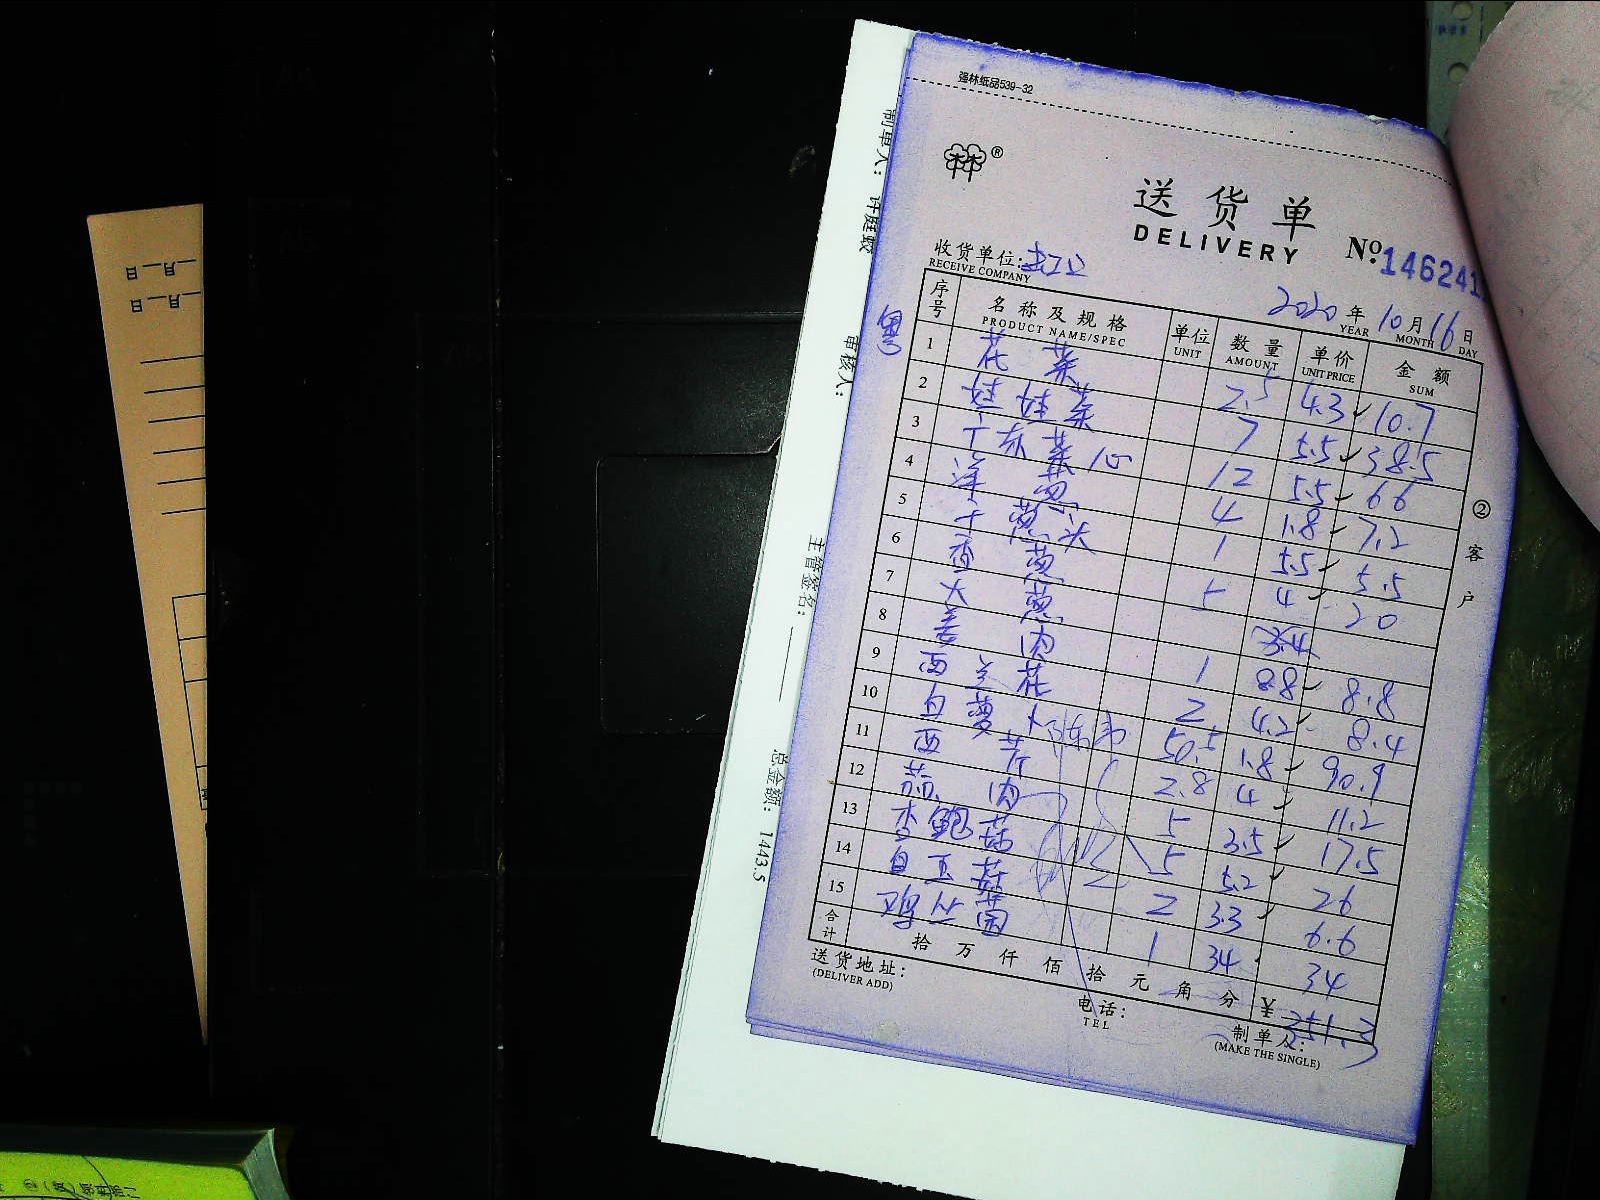 强林纸品539-32
送货单
DELIVERY
№ 146241
收货单位:
RECEIVE COMPANY
2020年10月16日
YEAR MONTH DAY
粤
序号 名称及规格 单位 数量 单价 金额
PRODUCT NAME/SPEC UNIT AMOUNT UNIT PRICE SUM
1 花菜 2.5 4.3 10.7
2 娃娃菜 7 5.5 38.5
3 广东菜心 12 5.5 66
4 洋葱 4 1.8 7.2
5 干葱头 1 5.5 5.5
6 香葱 5 4 20
7 大葱 3.4
8 姜肉 1 8.8 8.8
9 西兰花 2 4.2 8.4
10 白萝卜 50.5 1.8 90.9
11 西芹 2.8 4 11.2
12 蒜肉 5 3.5 17.5
13 杏鲍菇 5 5.2 26
14 白玉菇 2 3.3 6.6
15 鸡丛菌 1 34 34
合计 拾万仟佰拾元角分 ¥ 351.3
送货地址:
(DELIVER ADD)
电话:
TEL
制单人:
(MAKE THE SINGLE)
②客户
制单人:
审核人:
主管签名:
总金额: 1443.5
月 日
月 日